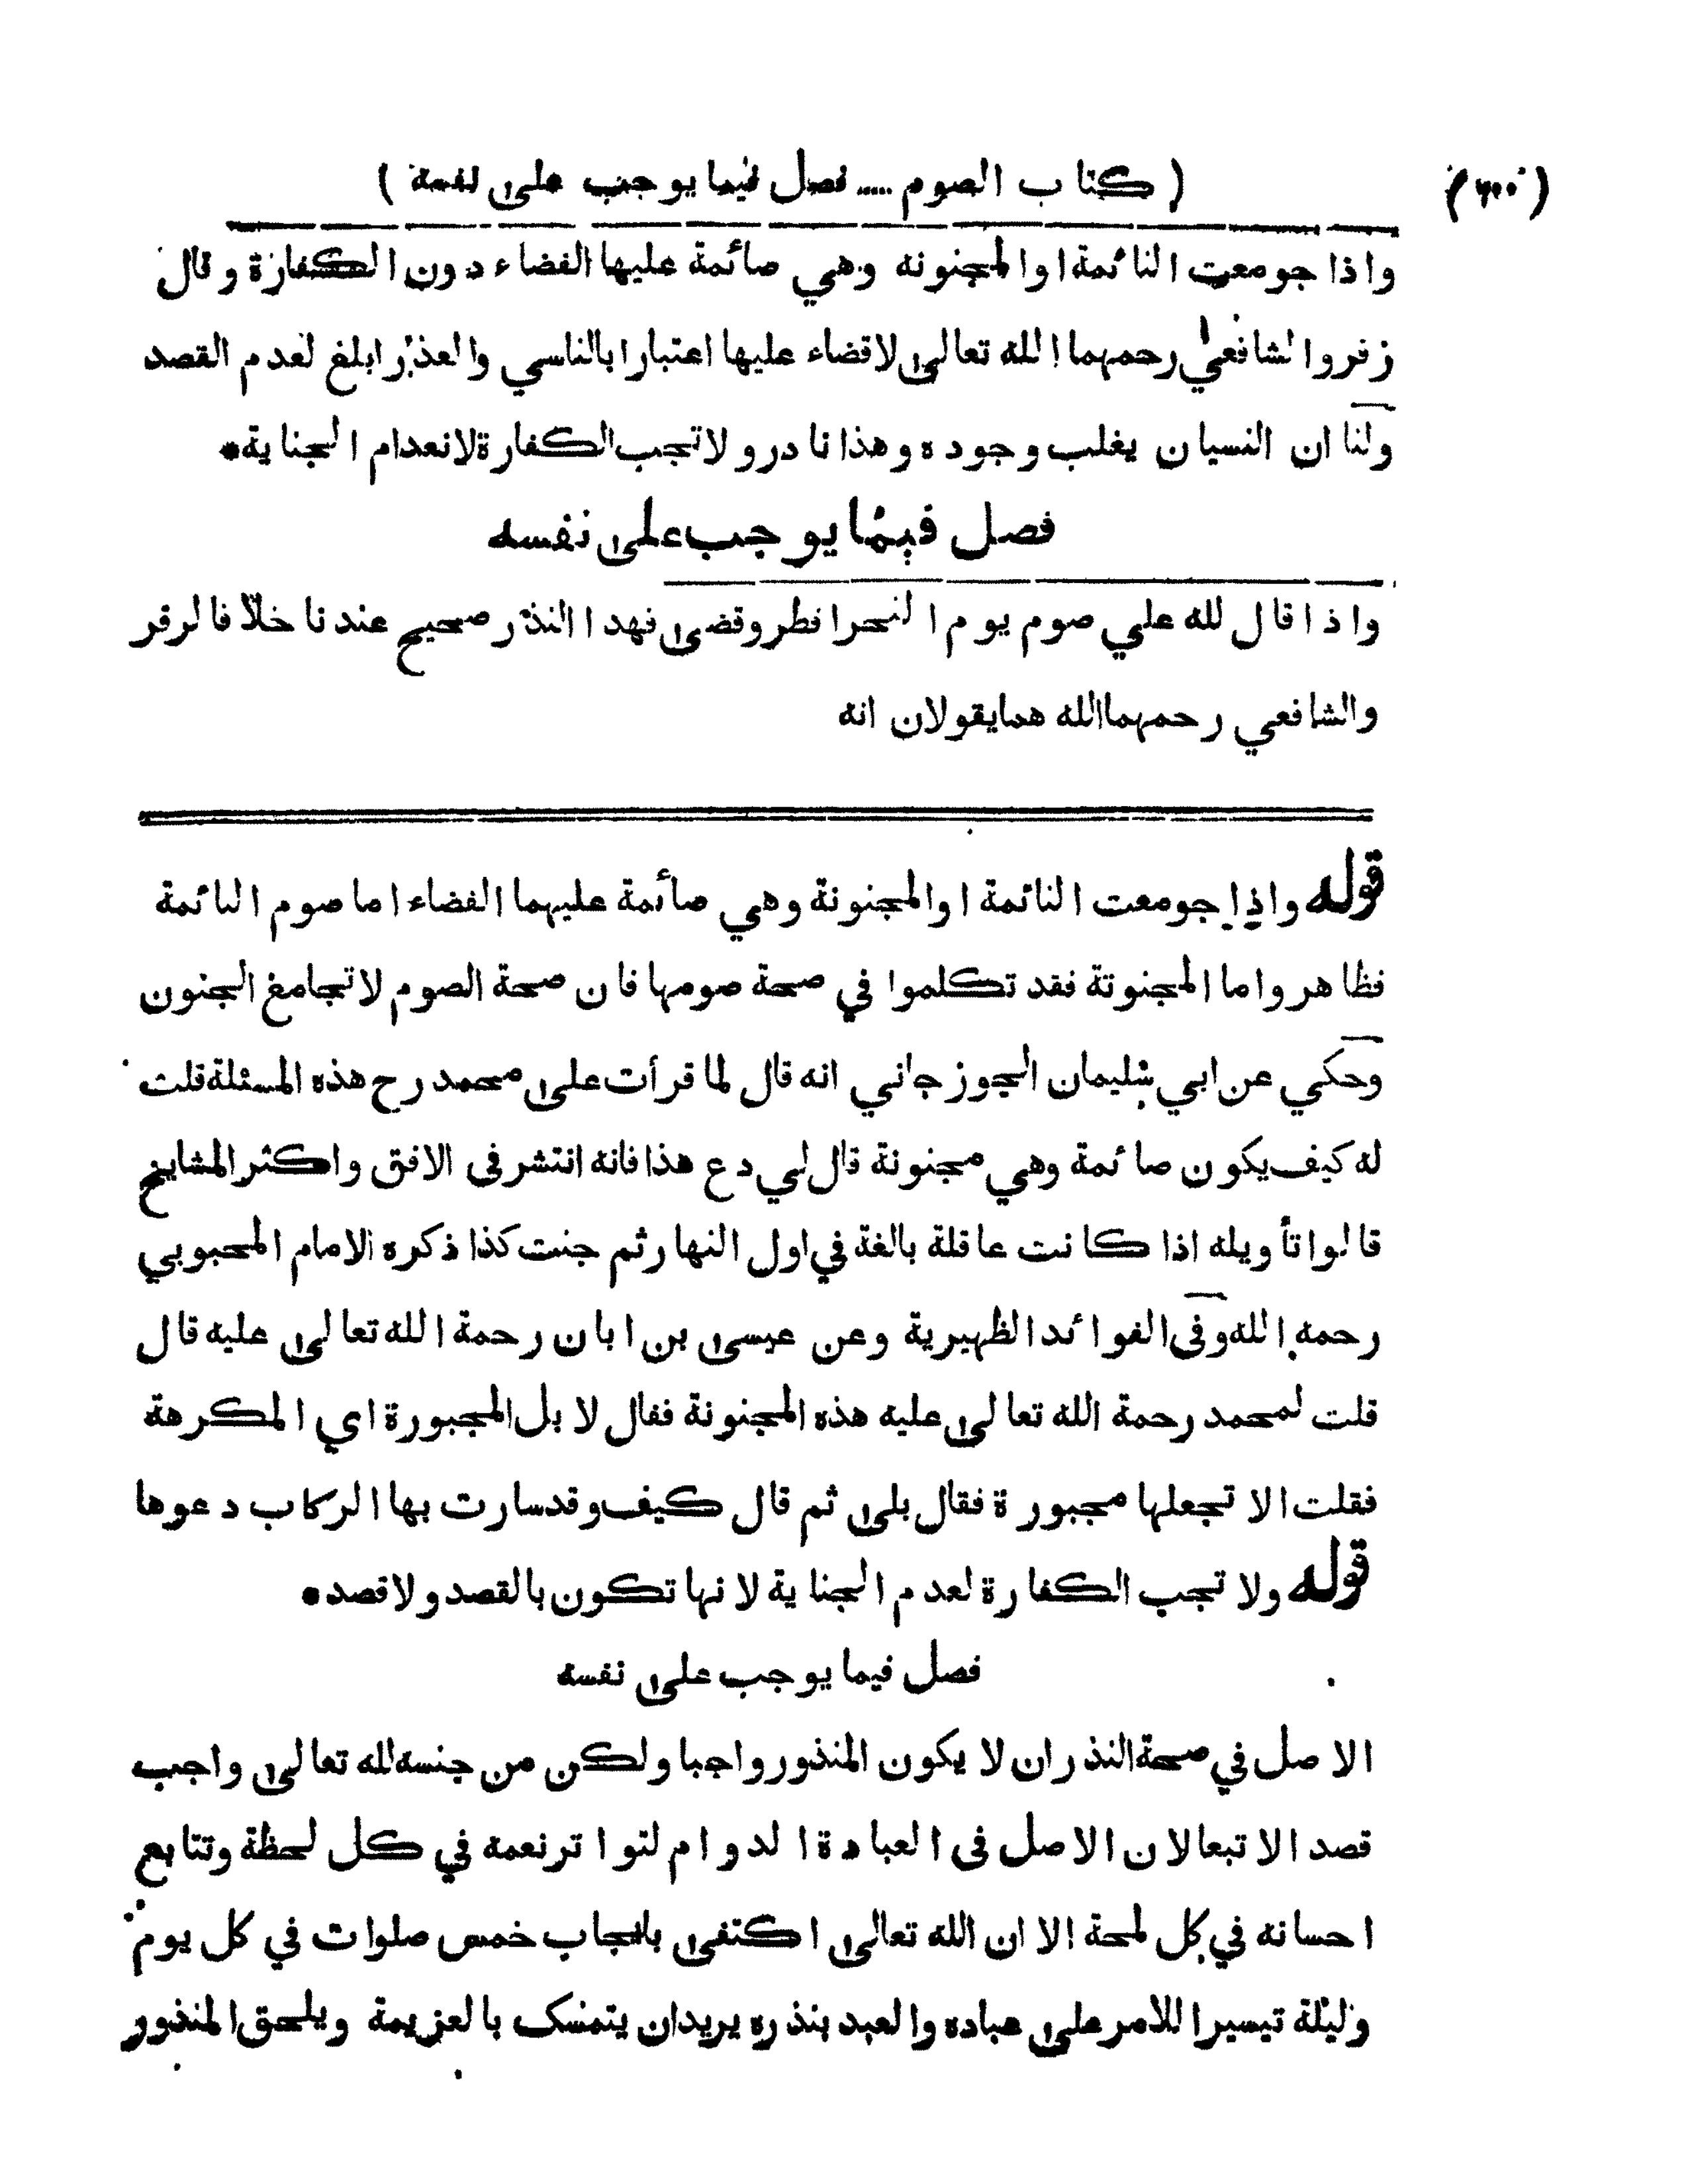 ( ٦٠٠ ) ( كتاب الصوم ..... فصل فيما يوجب على نفسه )
واذا جومعت النائمة او المجنونه وهي صائمة عليها القضاء دون الكفارة وقال
زفر والشافعي رحمهما الله تعالى لاقضاء عليها اعتبارا بالناسي والعذر ابلغ لعدم القصد
ولنا ان النسيان يغلب وجوده وهذا نادر ولا تجب الكفارة لانعدام الجناية *
فصل فيما يوجب على نفسه
واذا قال لله علي صوم يوم النحر افطر وقضى فهذا النذر صحيح عندنا خلافا لزفر
والشافعي رحمهما الله هما يقولان انه
قوله واذا جومعت النائمة او المجنونة وهي صائمة عليهما القضاء اما صوم النائمة
فظاهر واما المجنونة فقد تكلموا في صحة صومها فان صحة الصوم لا تجامع الجنون
وحكي عن ابي سليمان الجوزجاني انه قال لما قرأت على محمد رح هذه المسئلة قلت
له كيف يكون صائمة وهي مجنونة قال لي دع هذا فانه انتشر فى الافق واكثر المشايخ
قالوا تأويله اذا كانت عاقلة بالغة في اول النهار ثم جنت كذا ذكره الامام المحبوبي
رحمه الله وفى الفوائد الظهيرية وعن عيسى بن ابان رحمة الله تعالى عليه قال
قلت لمحمد رحمة الله تعالى عليه هذه المجنونة فقال لا بل المجبورة اي المكرهة
فقلت الا تجعلها مجبورة فقال بلى ثم قال كيف وقد سارت بها الركاب دعوها
قوله ولا تجب الكفارة لعدم الجناية لانها تكون بالقصد ولا قصد *
فصل فيما يوجب على نفسه
الاصل في صحة النذر ان لا يكون المنذور واجبا ولكن من جنسه لله تعالى واجب
قصدا لا تبعا لان الاصل فى العبادة الدوام لتواتر نعمه في كل لحظة وتتابع
احسانه في كل لمحة الا ان الله تعالى اكتفى بايجاب خمس صلوات في كل يوم
وليلة تيسيرا للامر على عباده والعبد بنذره يريد ان يتمسك بالعزيمة ويلحق المنذور